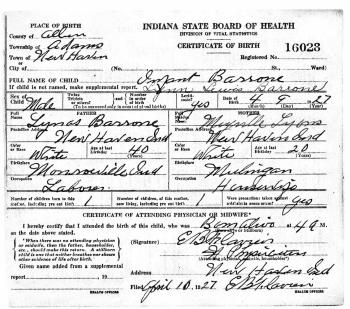 PLACE OF BIRTH
INDIANA STATE BOARD OF HEALTH
DIVISION OF VITAL STATISTICS
County of Allen
Township of Adams
CERTIFICATE OF BIRTH
16023
Town of New Haven
Registered No.
or
City of
(No. St. Ward)
FULL NAME OF CHILD Infant Barrone
If child is not named, make supplemental report.
Sex of Child Male
Yes 4 9 1927
(To be answered only in event of plural births) (Month) (Day) (Year)
FATHER
MOTHER
Full Name Lymas Barrone
Full Name Lyons
Postoffice Address New Haven Ind
Postoffice Address New Haven Ind
Color or Race White Age at last Birthday 40 (Years)
Color or Race White Age at last Birthday 20 (Years)
Birthplace Monroeville Ind
Birthplace Michigan
Occupation Laborer
Occupation Housewife
Number of children born to this mother, including present birth 1
Number of children, of this mother, now living, including present birth 1
yes
CERTIFICATE OF ATTENDING PHYSICIAN OR MIDWIFE*
I hereby certify that I attended the birth of this child, who was Born alive at 4 A M.
on the date above stated.
*When there was no attending physician
or midwife, then the father, householder,
etc., should make this return. A stillborn
child is one that neither breathes nor shows
other evidence of life after birth.
(Signature)
Given name added from a supplemental
report 19
Address New Haven Ind
Filed April 10 1927
HEALTH OFFICER
HEALTH OFFICER